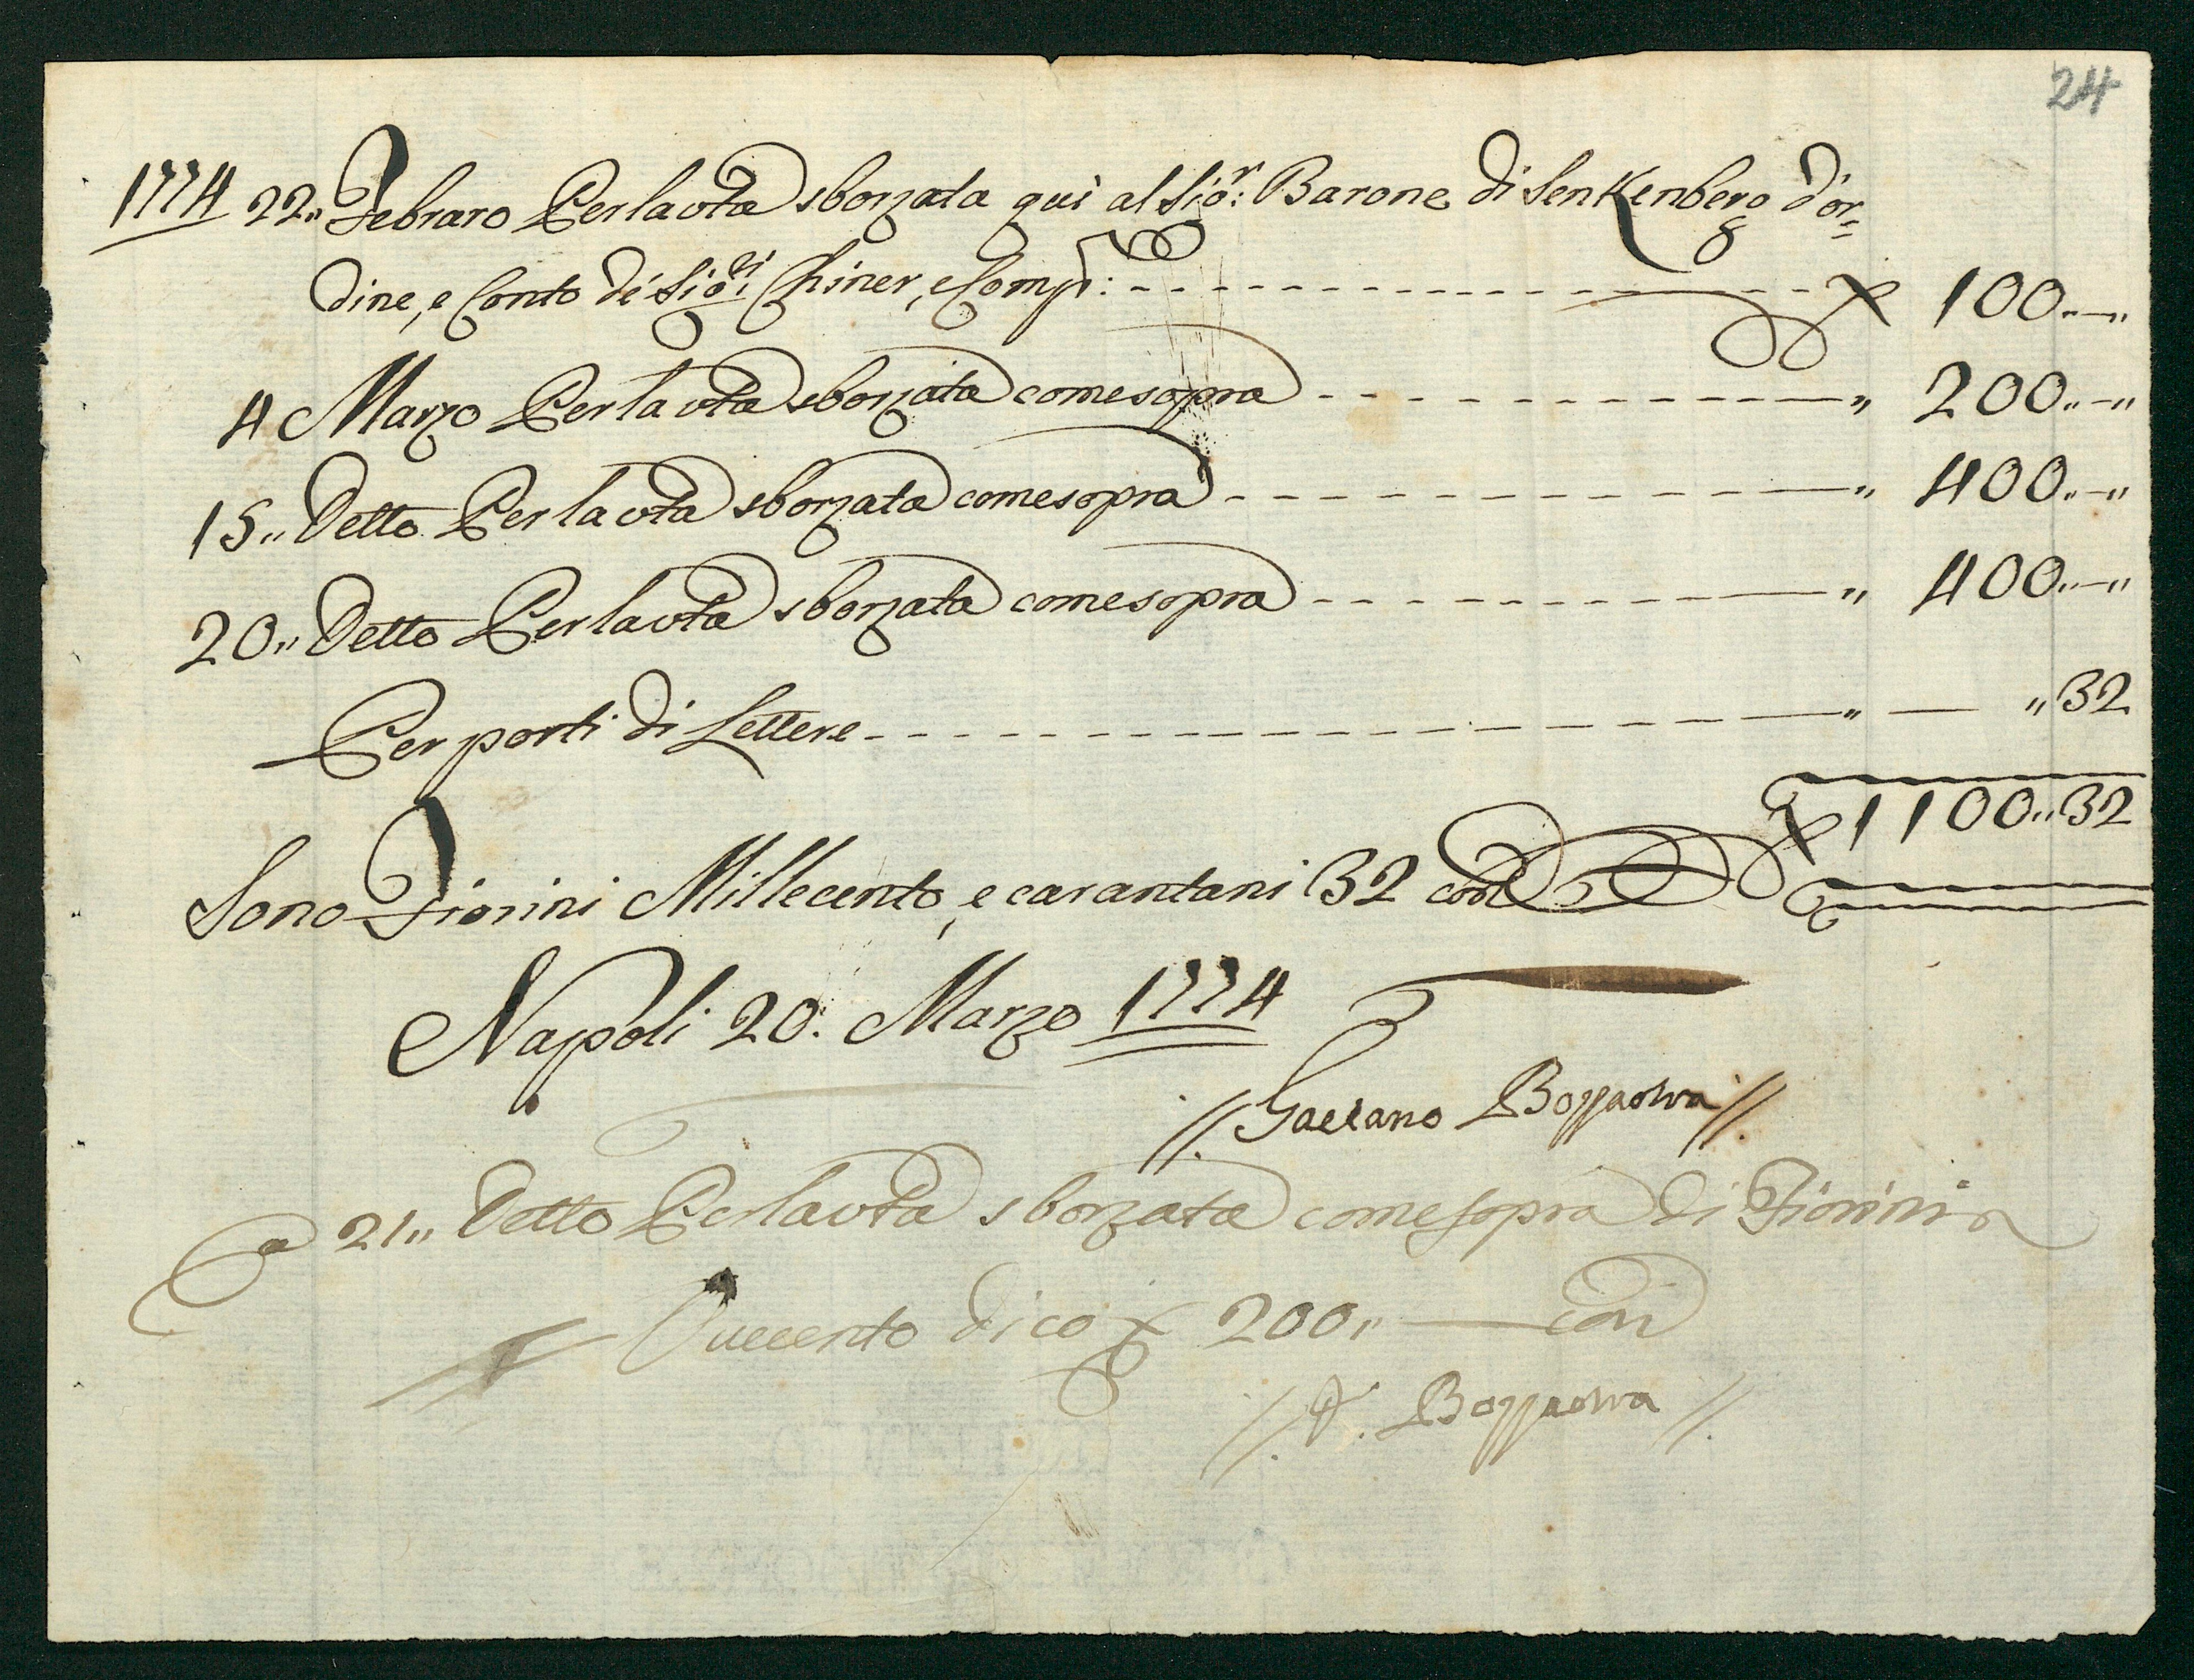 24
1774 22„ Febraro Per la vta sborzata quì al Sio.r: Barone di Senkenberg d'or=
dine, e Conto de' Sio.ri Chiner, e Comp: --- f 100„—„
4 Marzo Per la vta sborzata come sopra --- „ 200„—„
15„ Detto Per la vta sborzata come sopra --- „ 400„—„
20„ Detto Per la vta sborzata come sopra --- „ 400„—„
Per porti di Lettere --- „ — „32
f 1100„32
Sono Fiorini Millecento, e carantani 32 cor
Napoli 20. Marzo 1774
//. Gaetano //.
a 21„ Detto Per la vta sborzata come sopra di Fiorini
Duecento dico f 200„ — cori
//. //.